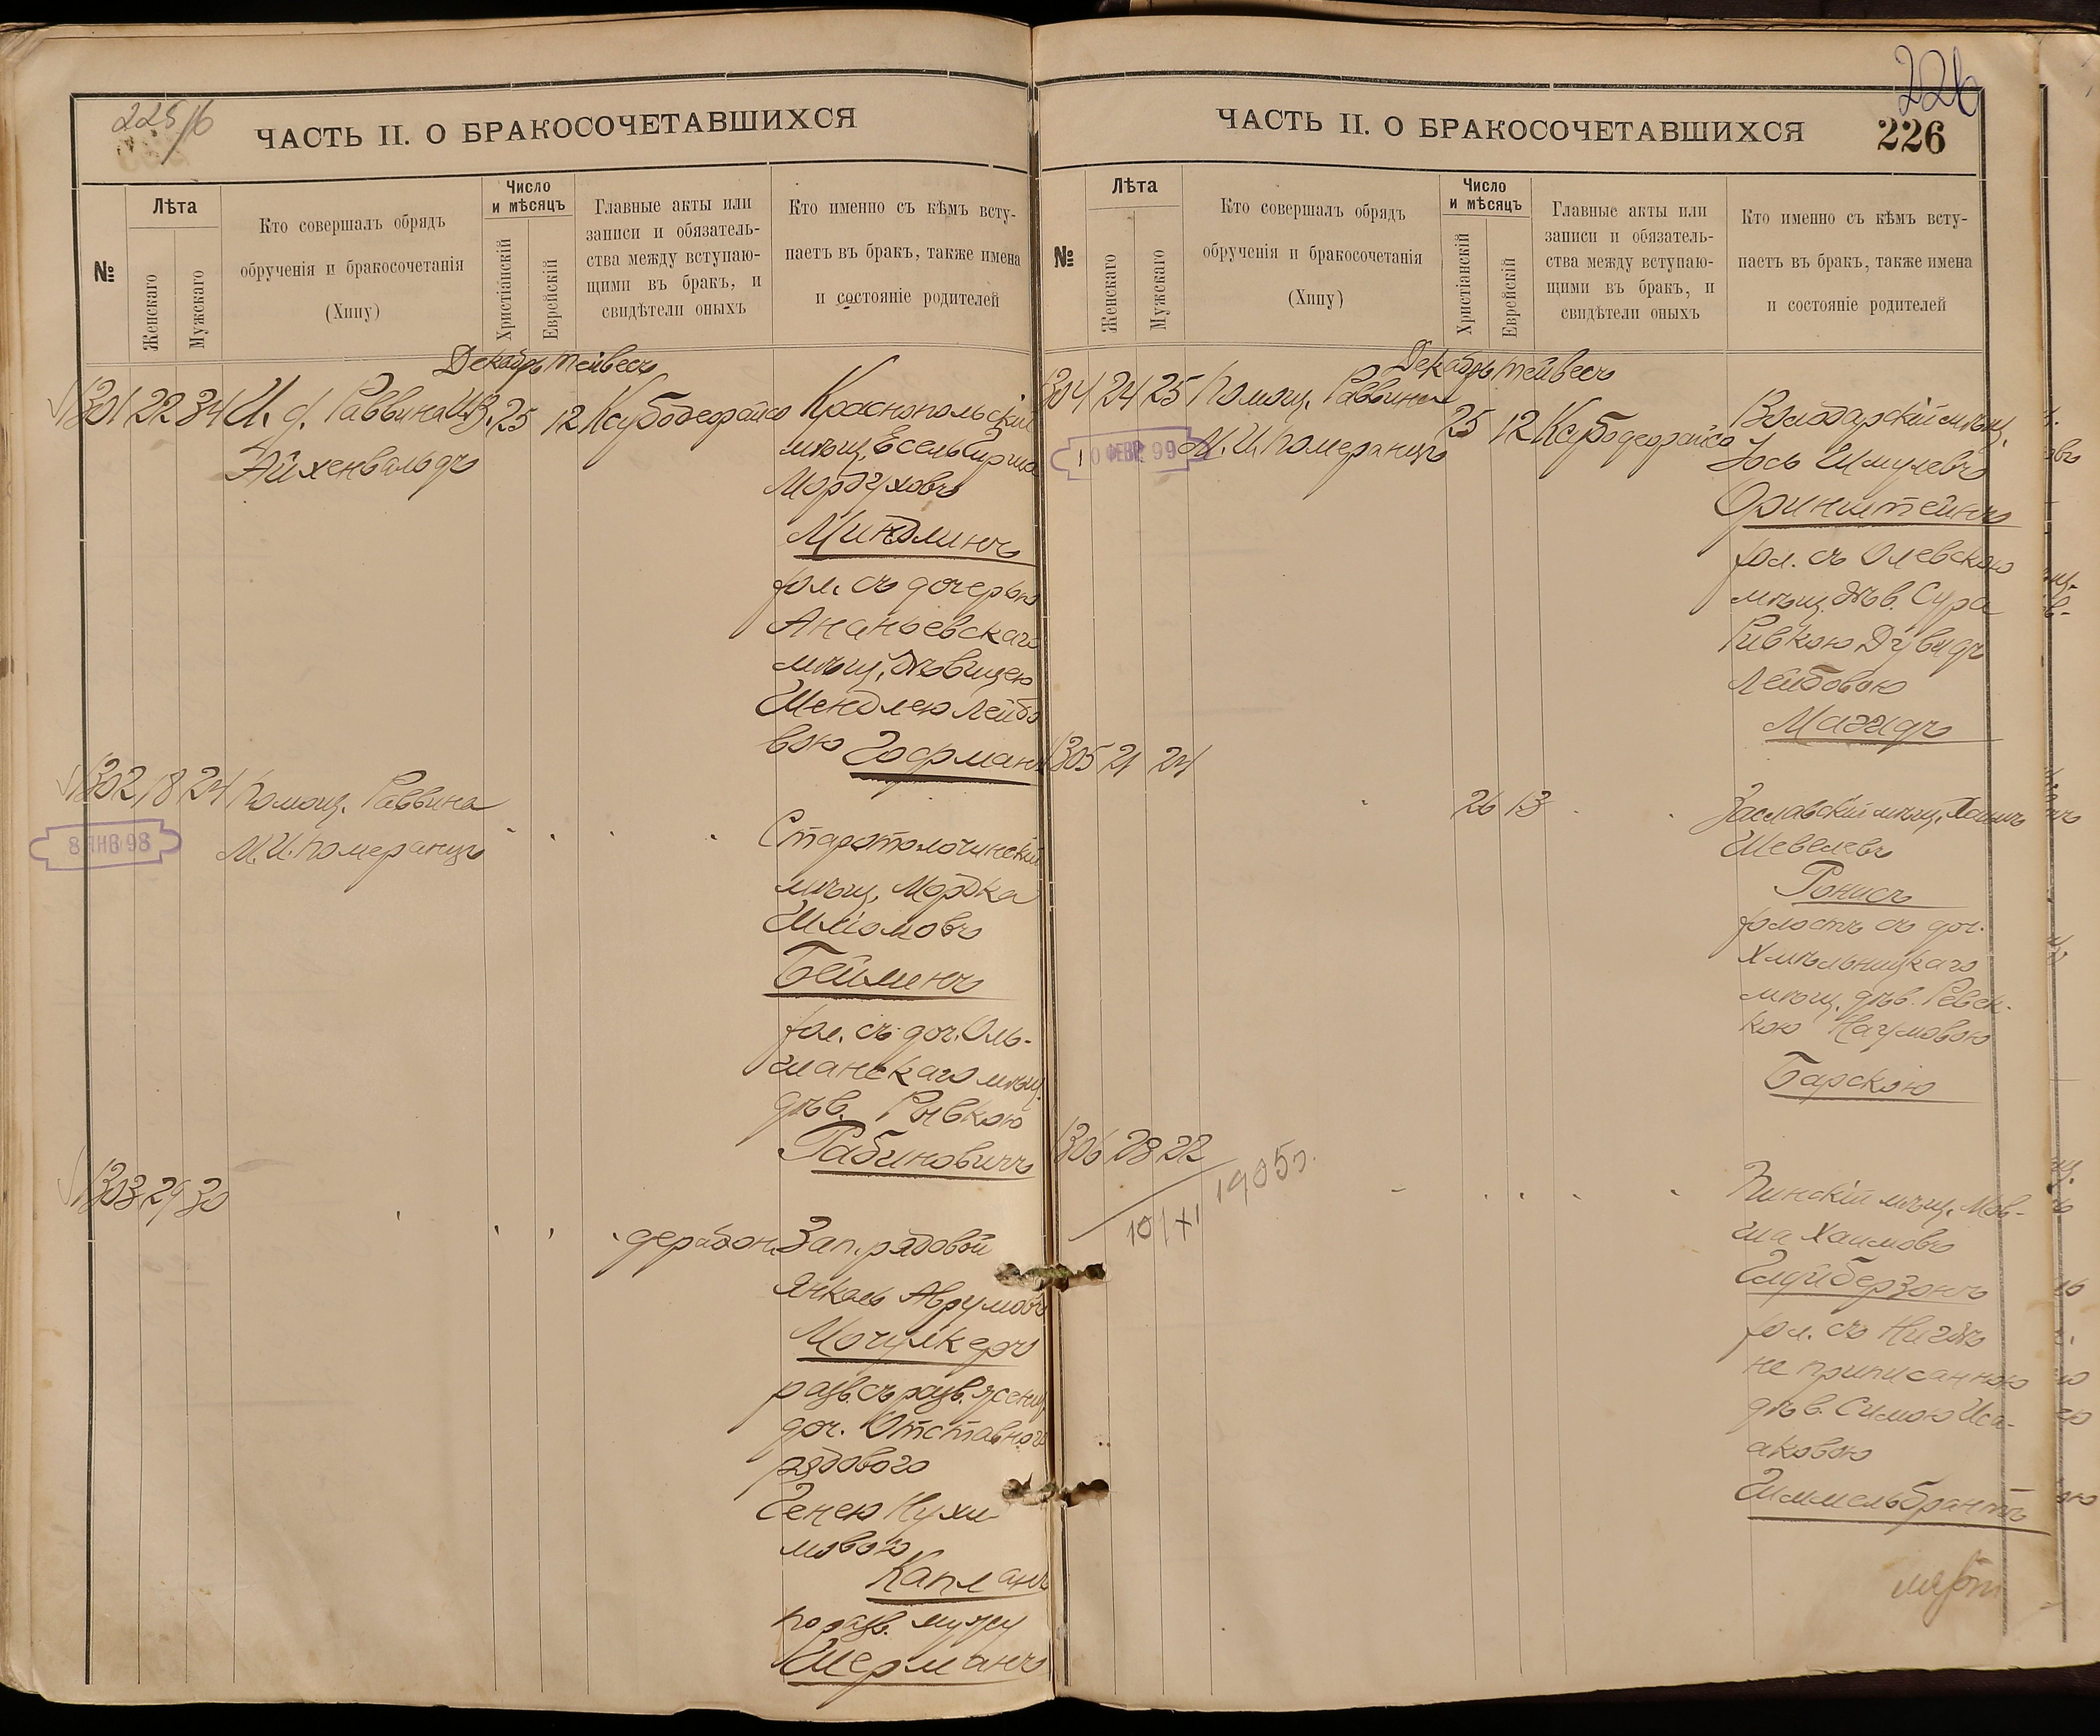 225/6
ЧАСТЬ II. О БРАКОСОЧЕТАВШИХСЯ
№
Лѣта
Женскаго
Мужскаго
Кто совершалъ обрядъ
обрученія и бракосочетанія
(Хипу)
Число
и мѣсяцъ
Христіанскій
Еврейскій
Главные акты или
записи и обязатель-
ства между вступаю-
щими въ бракъ, и
свидѣтели оныхъ
Кто именно съ кѣмъ всту-
паетъ въ бракъ, также имена
и состояніе родителей
Декабрь тейвесъ
1301 22 34 И. д. Раввина 25 12 Ксубодеорайсо
Эйхенвальдъ
Краснопольскій
мѣщ. Есель Гирша
Мордуховъ
Миндлинъ
хол. съ дочерью
Ананьевскаго
мѣщ. дѣвицею
Шендлею Лейбо
вою Гофманъ
1302 18 24 Помощ. Раввина
М. И. Померанцъ
8 ЯНВ 98
Старотолочинскій
мѣщ. Мордка
Шліомовъ
Бейлинъ
хол. съ доч. Оль-
шанскаго мѣщ.
дѣв. Рывкою
Рабиновичъ
1303 29 30
дерабон.
Зап. рядовой
Янкель Аврумовъ
Мочулкеръ
разв. съ разв. жен.
доч. Отставного
рядового
Генею Нухи-
мовою
Капланъ
по разв. мужу
Шерманъ
226
ЧАСТЬ II. О БРАКОСОЧЕТАВШИХСЯ
226
№
Лѣта
Женскаго
Мужскаго
Кто совершалъ обрядъ
обрученія и бракосочетанія
(Хипу)
Число
и мѣсяцъ
Христіанскій
Еврейскій
Главные акты или
записи и обязатель-
ства между вступаю-
щими въ бракъ, и
свидѣтели оныхъ
Кто именно съ кѣмъ всту-
паетъ въ бракъ, также имена
и состояніе родителей
Декабрь тейвесъ
1304 24 25 Помощ. Раввина 25 12 Ксубодеорайсо
М. И. Померанцъ
ФЕВР 99
Володарскій мѣщ.
Іось Шмулевъ
Оринштейнъ
хол. съ Олевскою
мѣщ. дѣв. Сура
Ривкою Дувидъ
Лейбовою
Магидъ
1305 21 24 26 13
Заславскій мѣщ. Хаимъ
Шевелевъ
Ронисъ
холостъ съ доч.
Хмѣльницкаго
мѣщ. дѣв. Ревек-
кою Наумовою
Барскою
1306 28 22
10/XI 1905г.
Пинскій мѣщ. Мов-
ша Хаимовъ
Глуйберзонъ
хол. съ Нигдѣ
не приписанною
дѣв. Симою Иса-
аковою
Гиммельбрантъ